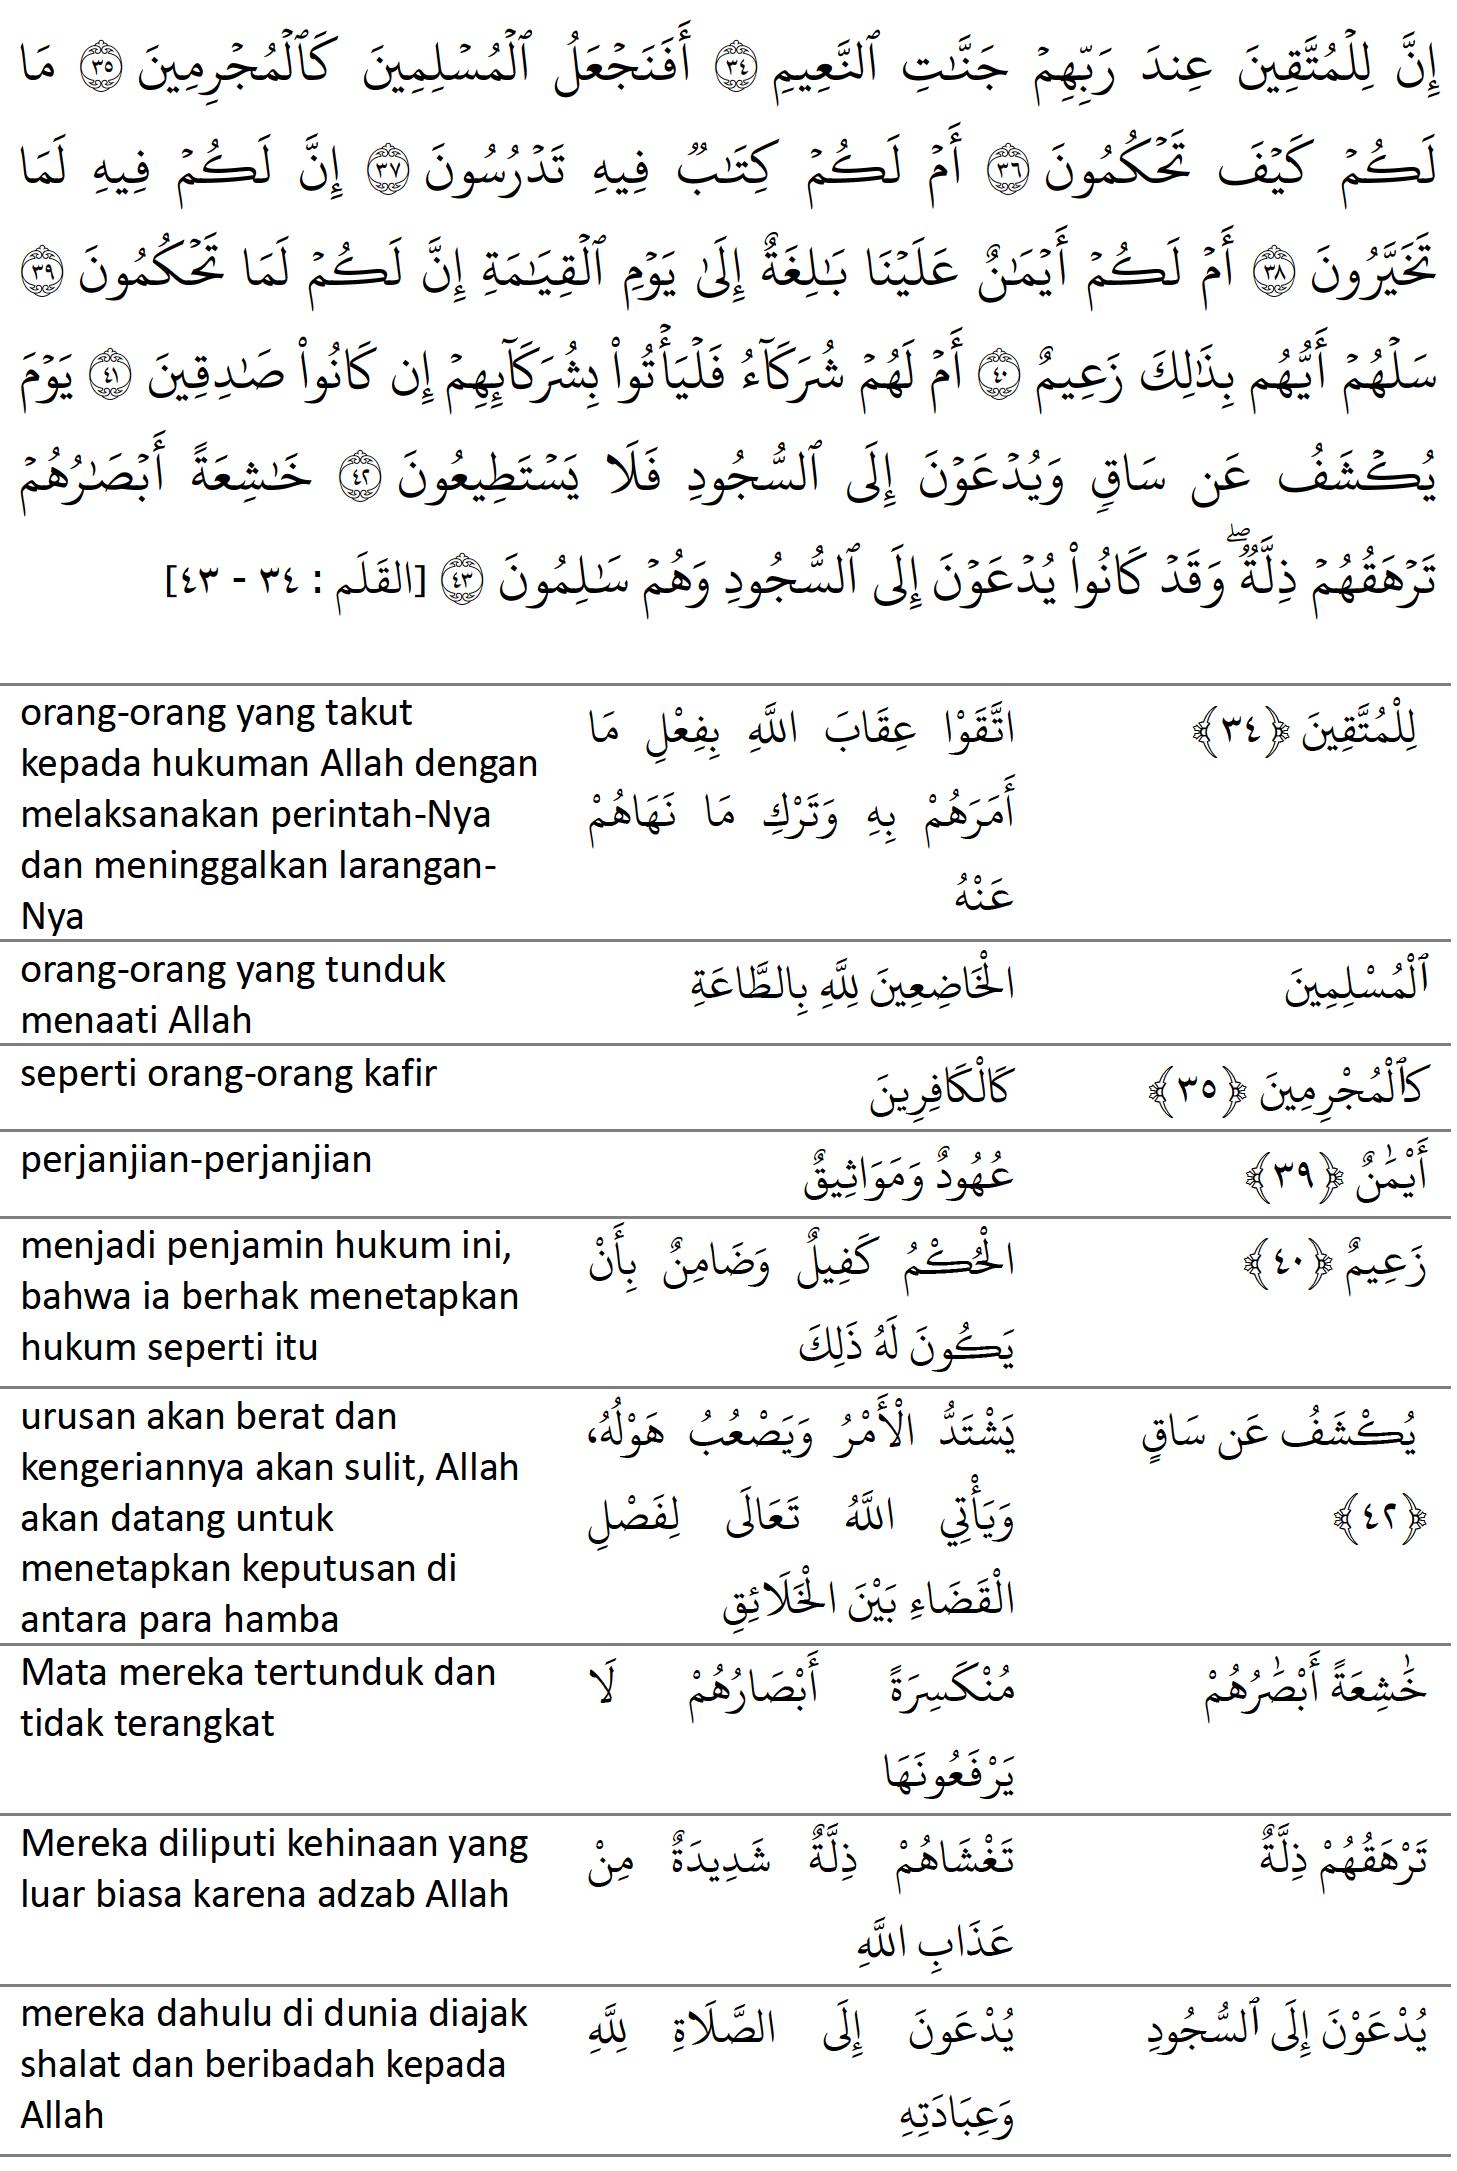 إِنَّ لِلۡمُتَّقِينَ عِندَ رَبِّهِمۡ جَنَّٰتِ ٱلنَّعِيمِ ٣٤ أَفَنَجۡعَلُ ٱلۡمُسۡلِمِينَ كَٱلۡمُجۡرِمِينَ ٣٥ مَا
لَكُمۡ كَيۡفَ تَحۡكُمُونَ ٣٦ أَمۡ لَكُمۡ كِتَٰبٞ فِيهِ تَدۡرُسُونَ ٣٧ إِنَّ لَكُمۡ فِيهِ لَمَا
تَخَيَّرُونَ ٣٨ أَمۡ لَكُمۡ أَيۡمَٰنٌ عَلَيۡنَا بَٰلِغَةٌ إِلَىٰ يَوۡمِ ٱلۡقِيَٰمَةِ إِنَّ لَكُمۡ لَمَا تَحۡكُمُونَ ٣٩
سَلۡهُمۡ أَيُّهُم بِذَٰلِكَ زَعِيمٌ ٤٠ أَمۡ لَهُمۡ شُرَكَآءُ فَلۡيَأۡتُواْ بِشُرَكَآئِهِمۡ إِن كَانُواْ صَٰدِقِينَ ٤١ يَوۡمَ
يُكۡشَفُ عَن سَاقٖ وَيُدۡعَوۡنَ إِلَى ٱلسُّجُودِ فَلَا يَسۡتَطِيعُونَ ٤٢ خَٰشِعَةً أَبۡصَٰرُهُمۡ
تَرۡهَقُهُمۡ ذِلَّةٞۖ وَقَدۡ كَانُواْ يُدۡعَوۡنَ إِلَى ٱلسُّجُودِ وَهُمۡ سَٰلِمُونَ ٤٣ [القَلَم : ٣٤ - ٤٣]
لِلْمُتَّقِينَ ﴿٣٤﴾
اتَّقَوْا عِقَابَ اللَّهِ بِفِعْلِ مَا
أَمَرَهُمْ بِهِ وَتَرْكِ مَا نَهَاهُمْ
عَنْهُ
orang-orang yang takut
kepada hukuman Allah dengan
melaksanakan perintah-Nya
dan meninggalkan larangan-
Nya
ٱلْمُسْلِمِينَ
الْخَاضِعِينَ لِلَّهِ بِالطَّاعَةِ
orang-orang yang tunduk
menaati Allah
كَٱلْمُجْرِمِينَ ﴿٣٥﴾
كَالْكَافِرِينَ
seperti orang-orang kafir
أَيْمَٰنٌ ﴿٣٩﴾
عُهُودٌ وَمَوَاثِيقٌ
perjanjian-perjanjian
زَعِيمٌ ﴿٤٠﴾
الْحُكْمُ كَفِيلٌ وَضَامِنٌ بِأَنْ
يَكُونَ لَهُ ذَلِكَ
menjadi penjamin hukum ini,
bahwa ia berhak menetapkan
hukum seperti itu
يُكْشَفُ عَن سَاقٍ
﴿٤٢﴾
يَشْتَدُّ الْأَمْرُ وَيَصْعُبُ هَوْلُهُ،
وَيَأْتِي اللَّهُ تَعَالَى لِفَصْلِ
الْقَضَاءِ بَيْنَ الْخَلَائِقِ
urusan akan berat dan
kengeriannya akan sulit, Allah
akan datang untuk
menetapkan keputusan di
antara para hamba
خَٰشِعَةً أَبْصَٰرُهُمْ
مُنْكَسِرَةً أَبْصَارُهُمْ لَا
يَرْفَعُونَهَا
Mata mereka tertunduk dan
tidak terangkat
تَرْهَقُهُمْ ذِلَّةٌ
تَغْشَاهُمْ ذِلَّةٌ شَدِيدَةٌ مِنْ
عَذَابِ اللَّهِ
Mereka diliputi kehinaan yang
luar biasa karena adzab Allah
يُدْعَوْنَ إِلَى ٱلسُّجُودِ
يُدْعَونَ إِلَى الصَّلَاةِ لِلَّهِ
وَعِبَادَتِهِ
mereka dahulu di dunia diajak
shalat dan beribadah kepada
Allah